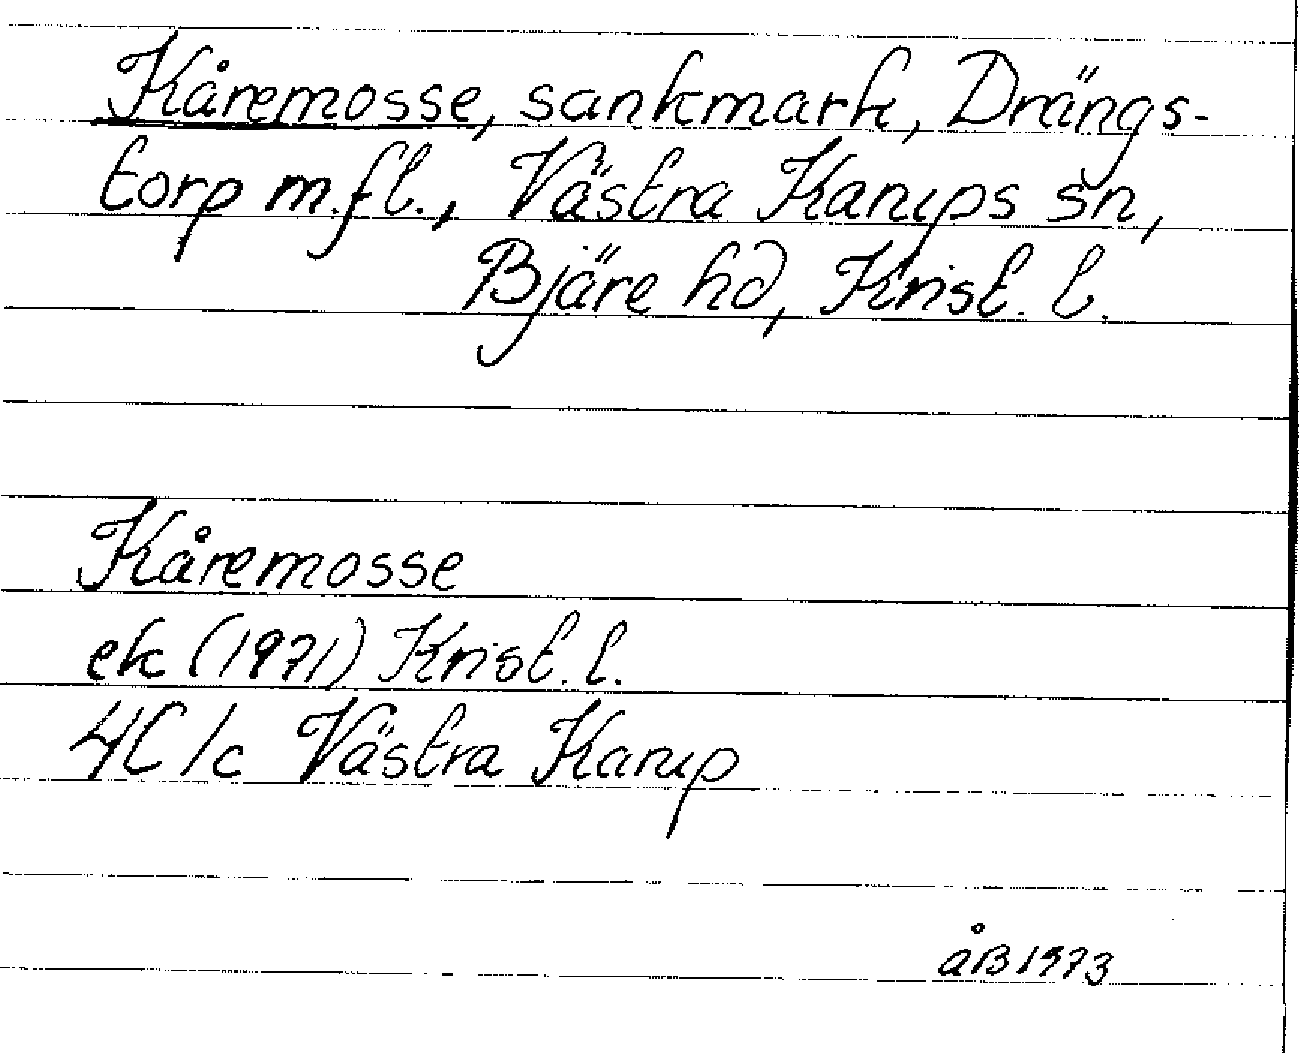 Kåremosse, sankmark, Drängs-
torp m.fl., Västra Karups sn,
Bjäre hd, Krist. l.
Kåremosse
ek (1971) Krist. l.
4C 1c Västra Karup
åB 1973